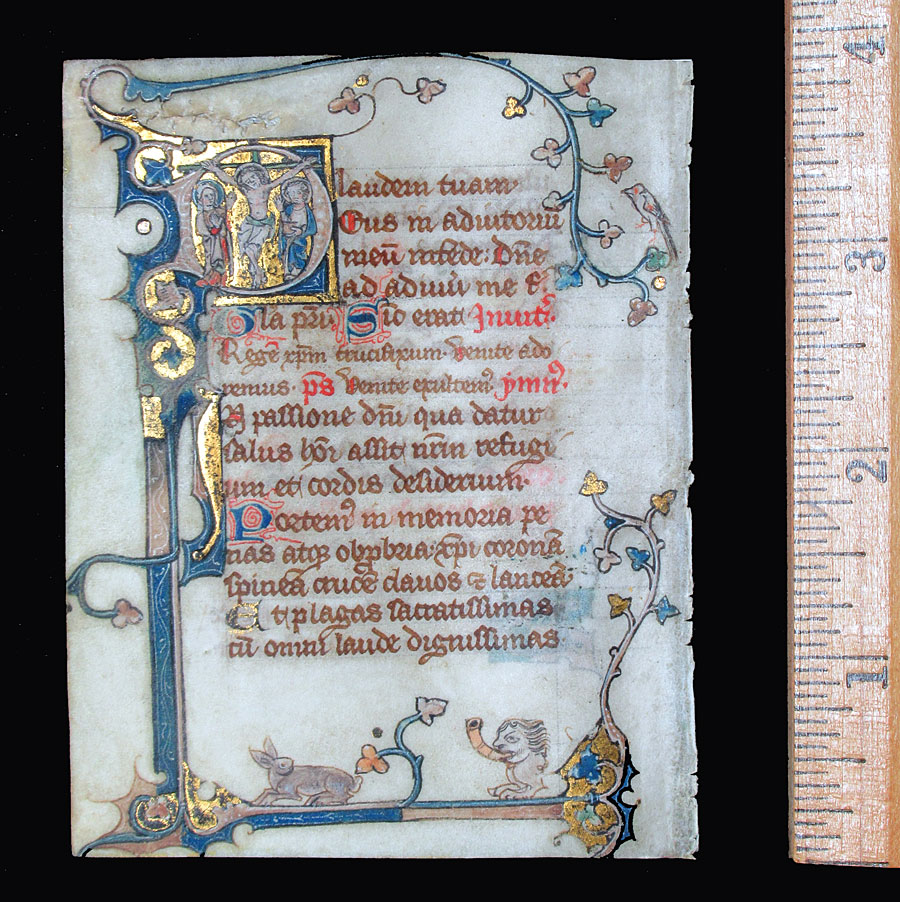 laudem tuam
Eus in adiutoriū
meū intēde: Dn̄e
ad adiuū me f.
Gla pr̄i Sic erat Inuit᷒.
Regē xp̄m crucifixum. Venite ado
remus. p̄s Venite exultem᷒. ymn᷒.
In passione dn̄i qua datur
salus hōi assit nr̄m refugi
um et cordis desiderium.
Portem᷒ in memoria pe
nas atq; obp̄bria: xp̄i coronā
spineā crucē clauos ⁊ lanceā
Et plagas sacratissimas
cū omni laude dignissimas
4
3
2
1